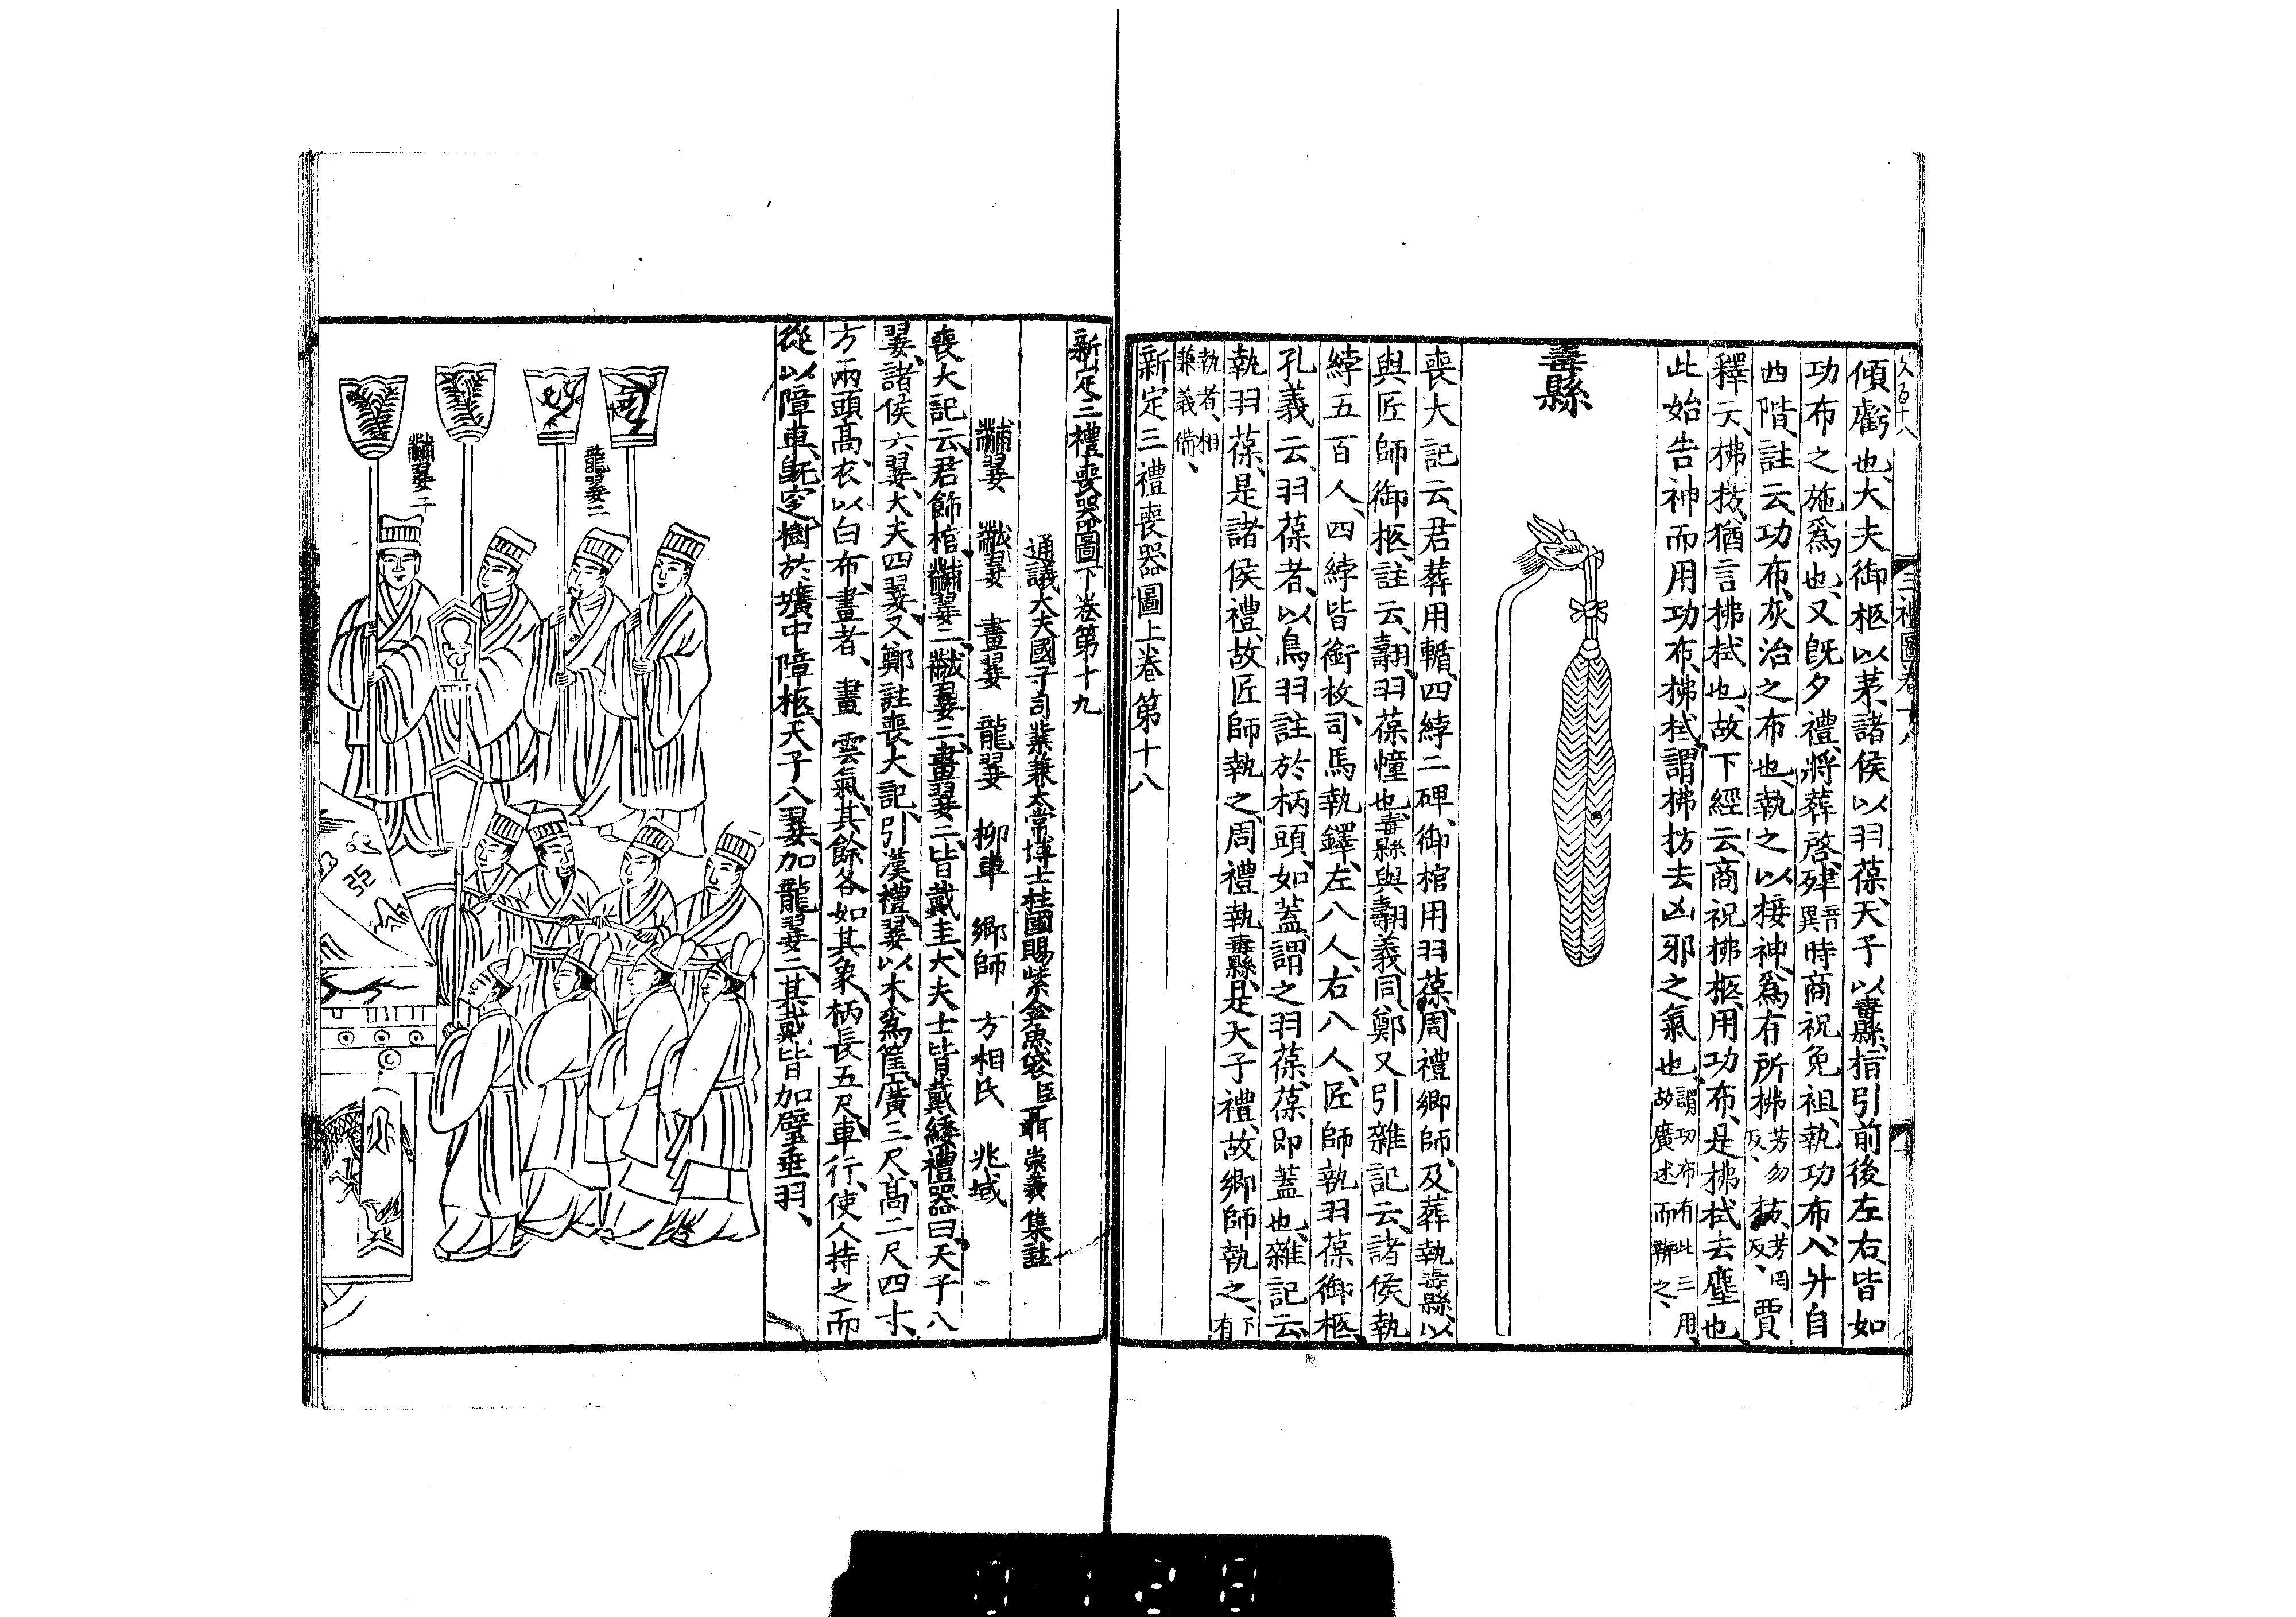 傾虧也、大夫御柩以茅、諸侯以羽葆、天子以纛、指引前後左右、皆如
功布之施爲也、又既夕禮、將葬啓、肂音異時、商祝免袒、執功布入、升自
西階、註云、功布、灰治之布也、執之以接神、爲有所拂芳勿反、㧊芳罔反、賈
釋云、拂㧊、猶言拂拭也、故下經云、商祝拂柩、用功布、是拂拭去塵也、
此始告神而用功布、拂拭、謂拂㧊去凶邪之氣也、謂功布有此三用、故廣述而辨之、
纛
喪大記云、君葬用輴、四綍二碑、御棺用羽葆、周禮鄉師、及葬執纛、以
與匠師御柩、註云、翿、羽葆幢也、纛與翿義同、鄭又引雜記云、諸侯執
綍五百人、四綍皆銜枚、司馬執鐸、左八人、右八人、匠師執羽葆御柩、
孔義云、羽葆者、以鳥羽註於柄頭、如蓋、謂之羽葆、葆即蓋也、雜記云、
執羽葆、是諸侯禮、故匠師執之、周禮執纛、是天子禮、故鄉師執之、下有
執者、相兼義備、
新定三禮喪器圖上卷第十八
新定三禮喪器圖下卷第十九
通議大夫國子司業兼太常博士柱國賜紫金魚袋臣聶崇義集註
黼翣 黻翣 畫翣 龍翣 柳車 鄉師 方相氏 兆域
喪大記云、君飾棺、黼翣二、黻翣二、畫翣二、皆戴圭、大夫士皆戴綏、禮器曰、天子八
翣、諸侯六翣、大夫四翣、又鄭註喪大記、引漢禮、翣以木爲筐、廣三尺、高二尺四寸、
方兩頭高、衣以白布、畫者、畫雲氣、其餘各如其象、柄長五尺、車行、使人持之而
從、以障車、既窆、樹於壙中障柩、天子八翣、加龍翣二、其戴皆加璧垂羽、
龍翣二
黼翣二
三禮圖卷十八
0128